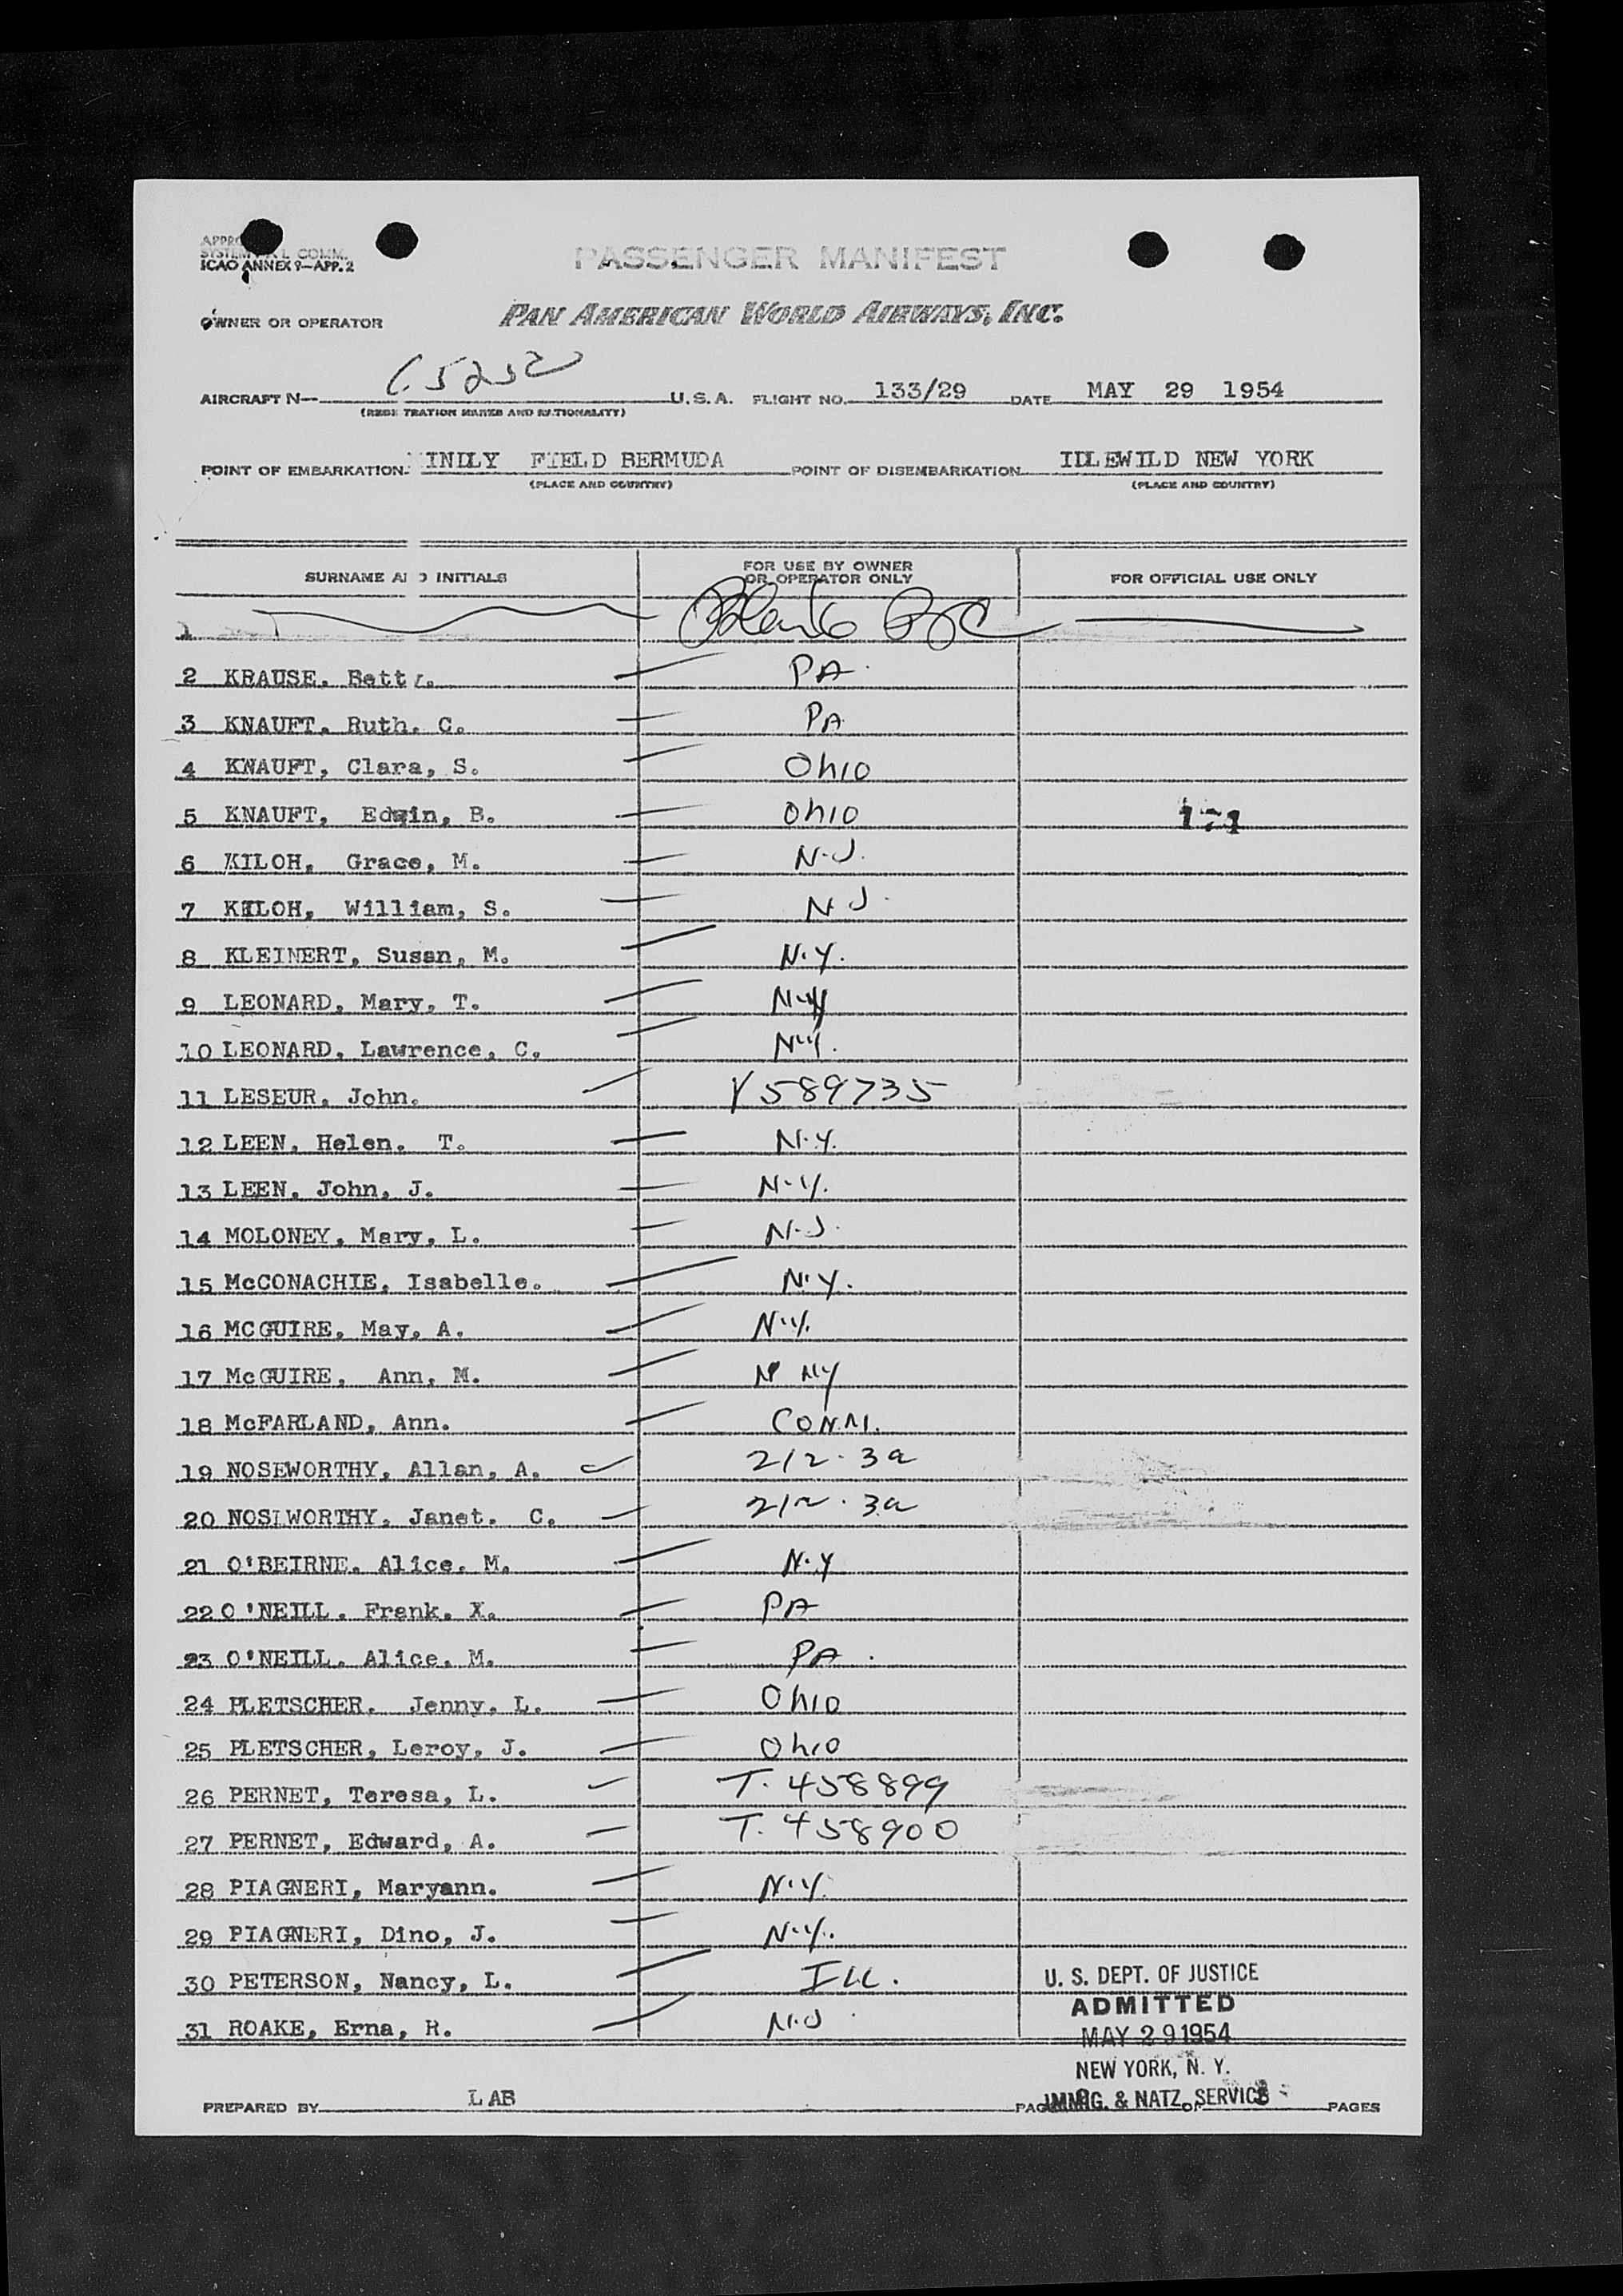 ICAO ANNEX 9-APP. 2
PASSENGER MANIFEST
OWNER OR OPERATOR PAN AMERICAN WORLD AIRWAYS, INC.
AIRCRAFT N- U.S.A. FLIGHT NO. 133/29 DATE MAY 29 1954
POINT OF EMBARKATION INDLY FIELD BERMUDA POINT OF DISEMBARKATION IDLEWILD NEW YORK
(PLACE AND COUNTRY) (PLACE AND COUNTRY)
SURNAME AND INITIALS FOR USE BY OWNER OR OPERATOR ONLY FOR OFFICIAL USE ONLY
1
2 KRAUSE, Betty. PA
3 KNAUFT, Ruth, C. PA
4 KNAUFT, Clara, S. Ohio
5 KNAUFT, Edwin, B. Ohio
6 KILOH, Grace, M. N.J.
7 KILOH, William, S. N J.
8 KLEINERT, Susan, M. N.Y.
9 LEONARD, Mary, T. N.Y
10 LEONARD, Lawrence, C. N.Y.
11 LESEUR, John. V 589735
12 LEEN, Helen, T. N.Y.
13 LEEN, John, J. N.Y.
14 MOLONEY, Mary, L. N.J.
15 McCONACHIE, Isabelle. N.Y.
16 MCGUIRE, May, A. N.Y.
17 McGUIRE, Ann, M. NY
18 McFARLAND, Ann. CONN.
19 NOSEWORTHY, Allan, A. 212.3a
20 NOSEWORTHY, Janet. C. 212.3a
21 O'BEIRNE, Alice, M. N.Y
22 O'NEILL, Frank, X. PA
23 O'NEILL, Alice, M. PA.
24 PLETSCHER, Jenny, L. Ohio
25 PLETSCHER, Leroy, J. Ohio
26 PERNET, Teresa, L. T. 458899
27 PERNET, Edward, A. T. 458900
28 PIAGNERI, Maryann. N.Y.
29 PIAGNERI, Dino, J. N.Y.
30 PETERSON, Nancy, L. ILL.
31 ROAKE, Erna, R. N.J
U. S. DEPT. OF JUSTICE
ADMITTED
MAY 29 1954
NEW YORK, N. Y.
IMMIG. & NATZ. SERVICE
PREPARED BY LAB PAGES